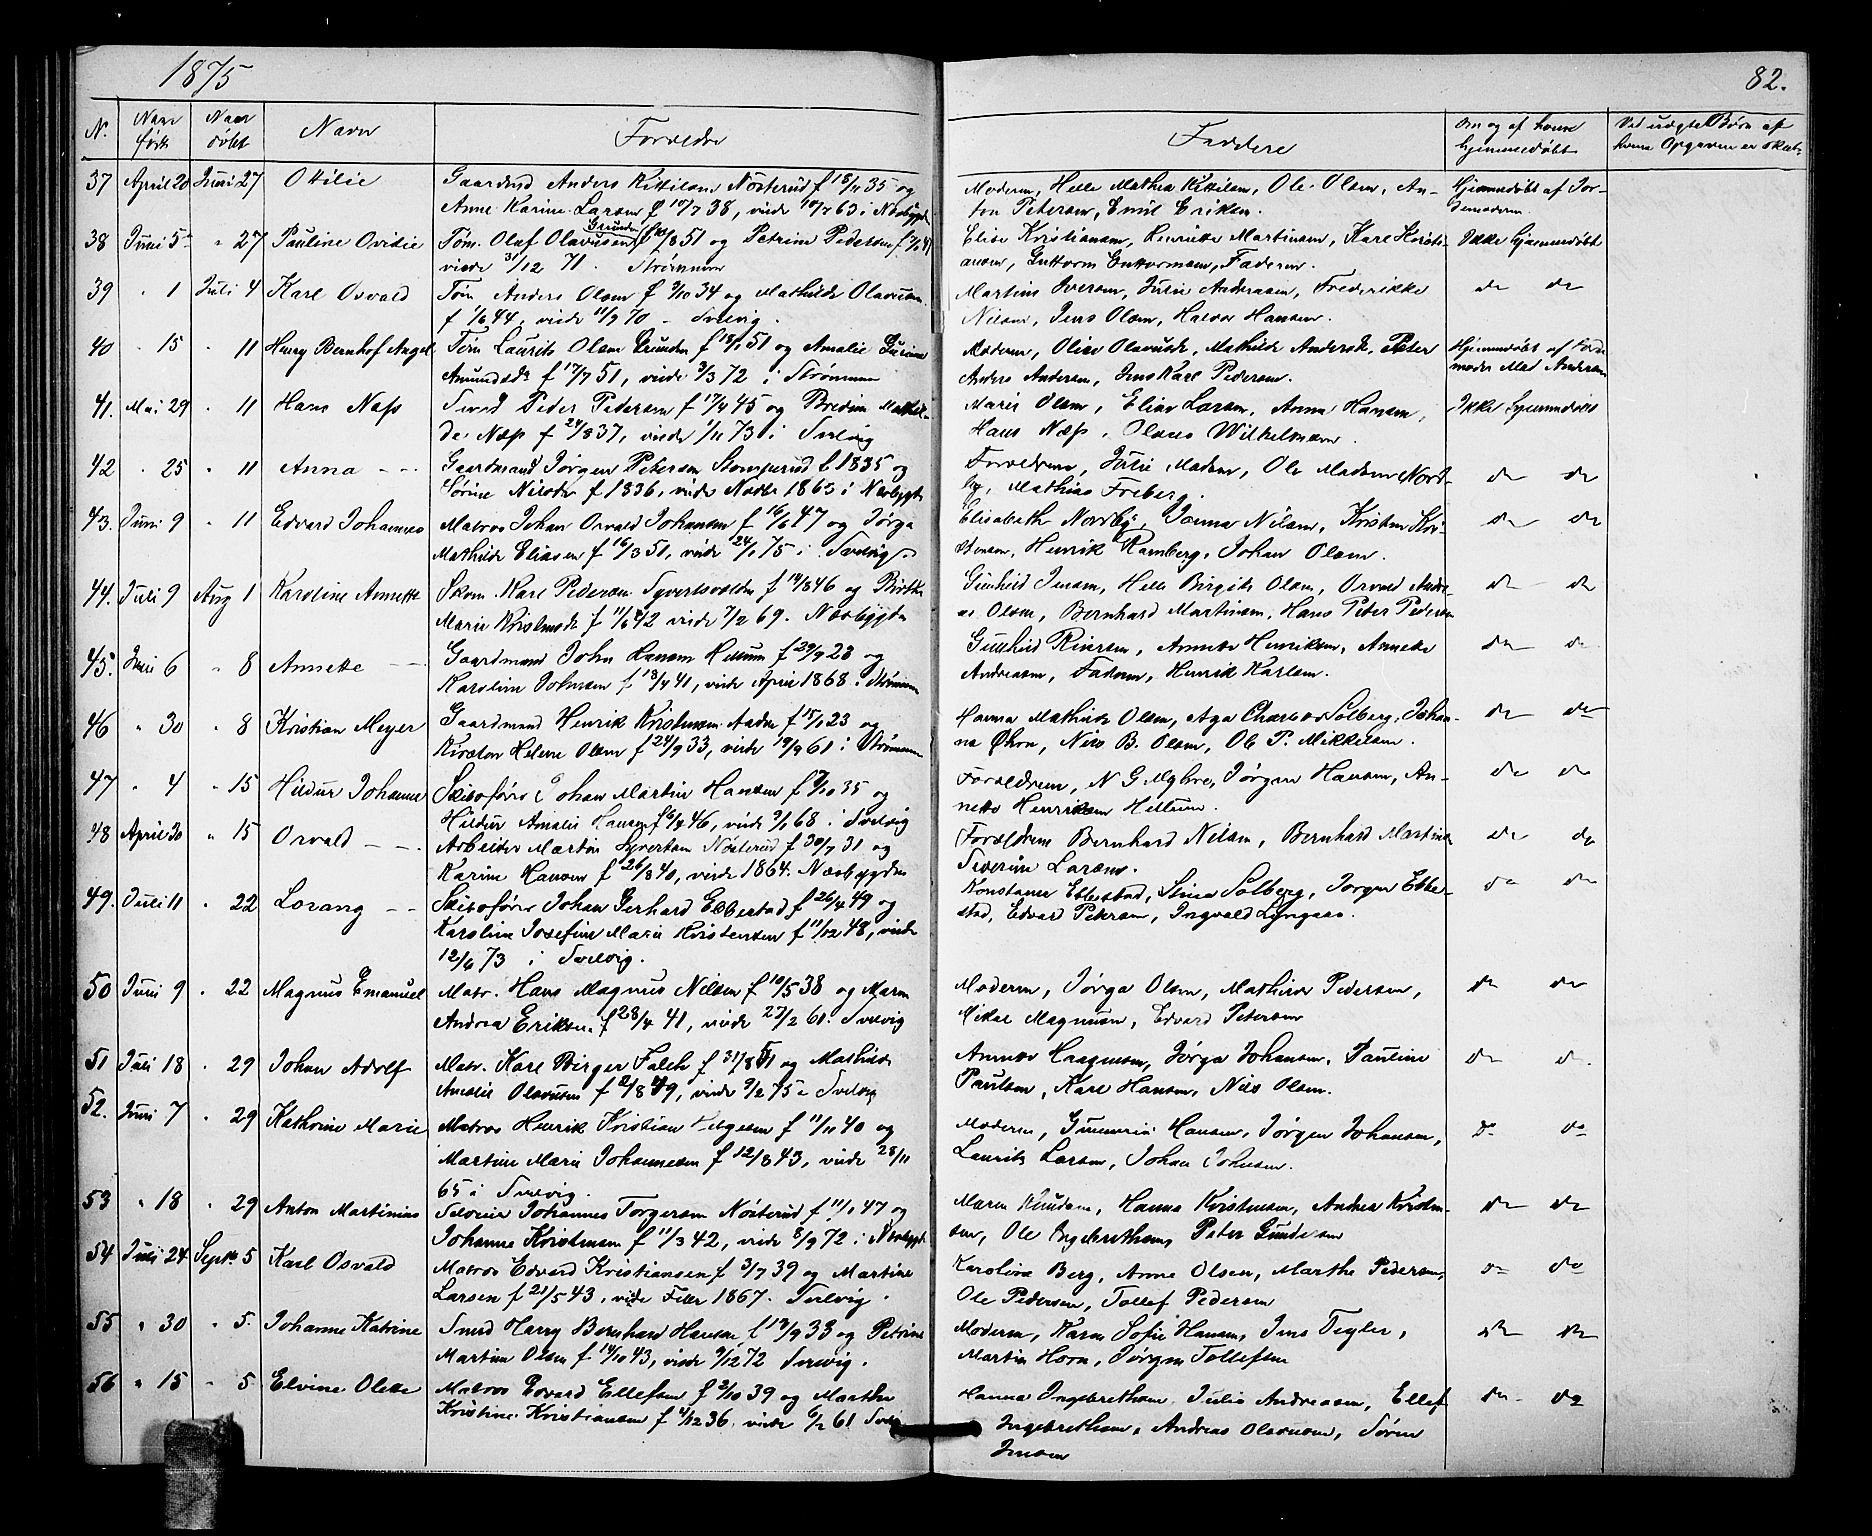 1875
N. Naar født Naar døbt Navn Forældre
37 April 20 Juni 27 Otilie Gaardmd Anders Kittilsen Nøsterud f 18/11 35 og
Anne Karine Larsen f 10/7 38, viede 10/7 63 i Næsbygd
38 Juni 5 " 27 Pauline Ovidie Tøm. Olaf Olavesen Grunden 8 51 og Petrine Pedersen f
viede 31/12 71. Strømmen
39 " 1 Juli 4 Karl Osvald Tøm Anders Olsen f 9/10 34 og Mathilde Olavesen
f 1/6 44, viede 11/9 70 - Svelvig.
40 " 15 " 11 Henry Bernhof Angel Tøm Laurits Olsen Grunden f 18/1 51 og Amalie Gurine
Amundsdt f 17/7 51, viede 3/3 72 i Strømmen
41. Mai 29 " 11 Hans Næss Svend Peder Pedersen f 17/4 45 og Bredine Mathil-
de Næss f 24/8 37, viede 1/11 73 i Svelvig
42 " 25 " 11 Anna - - Gaardmand Jørgen Petersen Stomperud f 1835 og
Sørine Nilsdtr f 1836, viede Novbr 1863 i Næsbygd
43. Juni 9 " 11 Edvard Johannes Matros Johan Osvald Johansen f 16/6 47 og Jørga
Mathilde Eliasen f 16/3 51, viede 24/1 75 i Svelvig
44. Juli 9 Aug 1 Karoline Annette Skom. Karl Pedersen Syvertsvolden f 19/8 46 og Birthe
Marie Kristensdt f 11/6 42 viede 7/2 69. Næsbygden
45. Juni 6 " 8 Annette - - Gaardmand John Hansen Hellum f 29/9 23 og
Karoline Johnsen f 18/4 41, viede April 1868 i Strømmen
46 " 30 " 8 Kristian Meyer Gaardmand Henrik Kristensen Aadne f 15/1 23 og
Kirsten Helene Olsen f 24/9 33, viede 19/9 61 i Strømmen
47 " 4 " 15 Hildur Johanne Skibsfører Johan Martin Hansen f 7/10 35 og
Hildur Amalie Hansen f 6/4 46, viede 9/1 68 i Svelvig
48 April 30 " 15 Osvald - - Arbeider Martin Syvertsen Nøsterud f 30/7 31 og
Karine Hansen f 26/8 40, viede 1864. Næsbygden
49. Juli 11 " 22 Lorang - - Skibsfører Johan Gerhard Ebbestad f 26/4 49 og
Karoline Josefine Marie Kristensen f 11/12 48, viede
12/6 73 i Svelvig.
50 Juni 9 " 22 Magnus Emanuel Matr. Hans Magnus Nilsen f 10/5 38 og Maren
Andrea Eriksen f 28/4 41, viede 27/2 61. Svelvig
51 Juli 18 " 29 Johan Adolf Matr. Karl Birger Falch f 31/8 51 og Mathilde
Amalie Olavesen f 2/8 49, viede 9/2 75 i Svelvig
52. Juni 7 " 29 Kathrine Marie Matros Henrik Kristian Helgesen f 11/11 40 og
Martine Marie Johannesen f 12/8 43, viede 28/11
65 i Svelvig.
53 " 18 " 29 Anton Martinius Selveier Johannes Torgersen Nøsterud f 11/1 47 og
Johanne Kristensen f 11/3 42, viede 8/9 72 i Næsbygd
54 Juli 24 Septbr 5 Karl Osvald Matros Edvard Kristiansen f 3/7 39 og Martine
Larsen f 21/5 43, viede Febr 1867. Svelvig.
55 " 30 " 5. Johanne Katrine Smed Harry Bernhard Hansen f 19/9 33 og Petrine
Martine Olsen f 14/10 43, viede 9/12 72 Svelvig.
56 " 15 " 5 Elvine Olette Matros Edvard Ellefsen f 2/10 39 og Marthe
Kristine Kristiansen f 4/12 36, viede 6/2 61 Svelvig
82.
Faddere Om og af hvem hjemmedøbt Ved uægte Børn af hvem Opgaven er skeet
Moderen, Helle Mathea Kittilsen, Ole Olsen, An- Hjemmedøbt af Jor-
ton Petersen, Emil Eriksen. demoderen
Elise Kristiansen, Henriette Martinsen, Karl Kristi- Ikke hjemmedøbt
ansen, Guttorm Guttormsen, Faderen.
Martine Iversen, Julie Andreasen, Frederikke do do
Nilsen, Jens Olsen, Halvor Hansen.
Moderen, Olise Olavesdt, Mathilde Andersdt, Peter Hjemmedøbt af Jorde
Anders Andersen, Jens Karl Pedersen. moder Mad Andersen
Maris Olsen, Elise Larsen, Anna Hansen, Ikke hjemmedøbt
Hans Næss, Olaus Wilhelmsen.
Forældrene, Julie Madsen, Ole Madsen Nord- do do
by, Mathias Freberg.
Elisabeth Nordby, Janna Nilsen, Kristen Kri- do do
stensen, Henrik Ramberg, Johan Olsen.
Gunhild Jensen, Helle Birgitte Olsen, Osvald Andre- do do
as Olsen, Bernhard Martinsen, Hans Peter Pedersen
Gunhild Riersen, Annette Henriksen, Annette do do
Andreasen, Faderen, Henrik Karlsen.
Hanna Mathilde Olsen, Aga Charlotte Solberg, Johan- do do
ne Øhrn, Nils B. Olsen, Ole P. Mikkelsen.
Forældrene, N G Myhre, Jørgen Hansen, An- do do
nette Henriksen Hellum.
Forældrene Bernhard Nilsen, Bernhard Martins do do
Severine Larsens.
Konstanse Ebbestad, Stina Solberg, Jørgen Ebbe- do do
stad, Edvard Petersen, Ingvald Lyngaas.
Moderen, Jørga Olsen, Mathilde Pedersen, do do
Mikal Magnusen, Edvard Petersen
Annette Haagensen, Jørga Johansen, Pauline do do.
Paulsen, Karl Hansen, Nils Olsen.
Moderen, Gunneria Hansen, Jørgen Johansen, do do
Laurits Larsen, Johan Johnsen.
Maren Knudsen, Hanna Kristensen, Andrea Kristen- do do
sen, Ole Ingebrethsen, Peter Gundersen
Karoline Berg, Anne Olsen, Marthe Pedersen, do do
Ole Pedersen, Tollef Pedersen
Moderen, Karen Sofie Hansen, Jens Tegler, do do
Martin Horn, Jørgen Tollefsen
Hanna Ingebrethsen, Julie Andreasen, Ellef do do
Ingebrethsen, Andreas Olavesen, Søren
Jensen